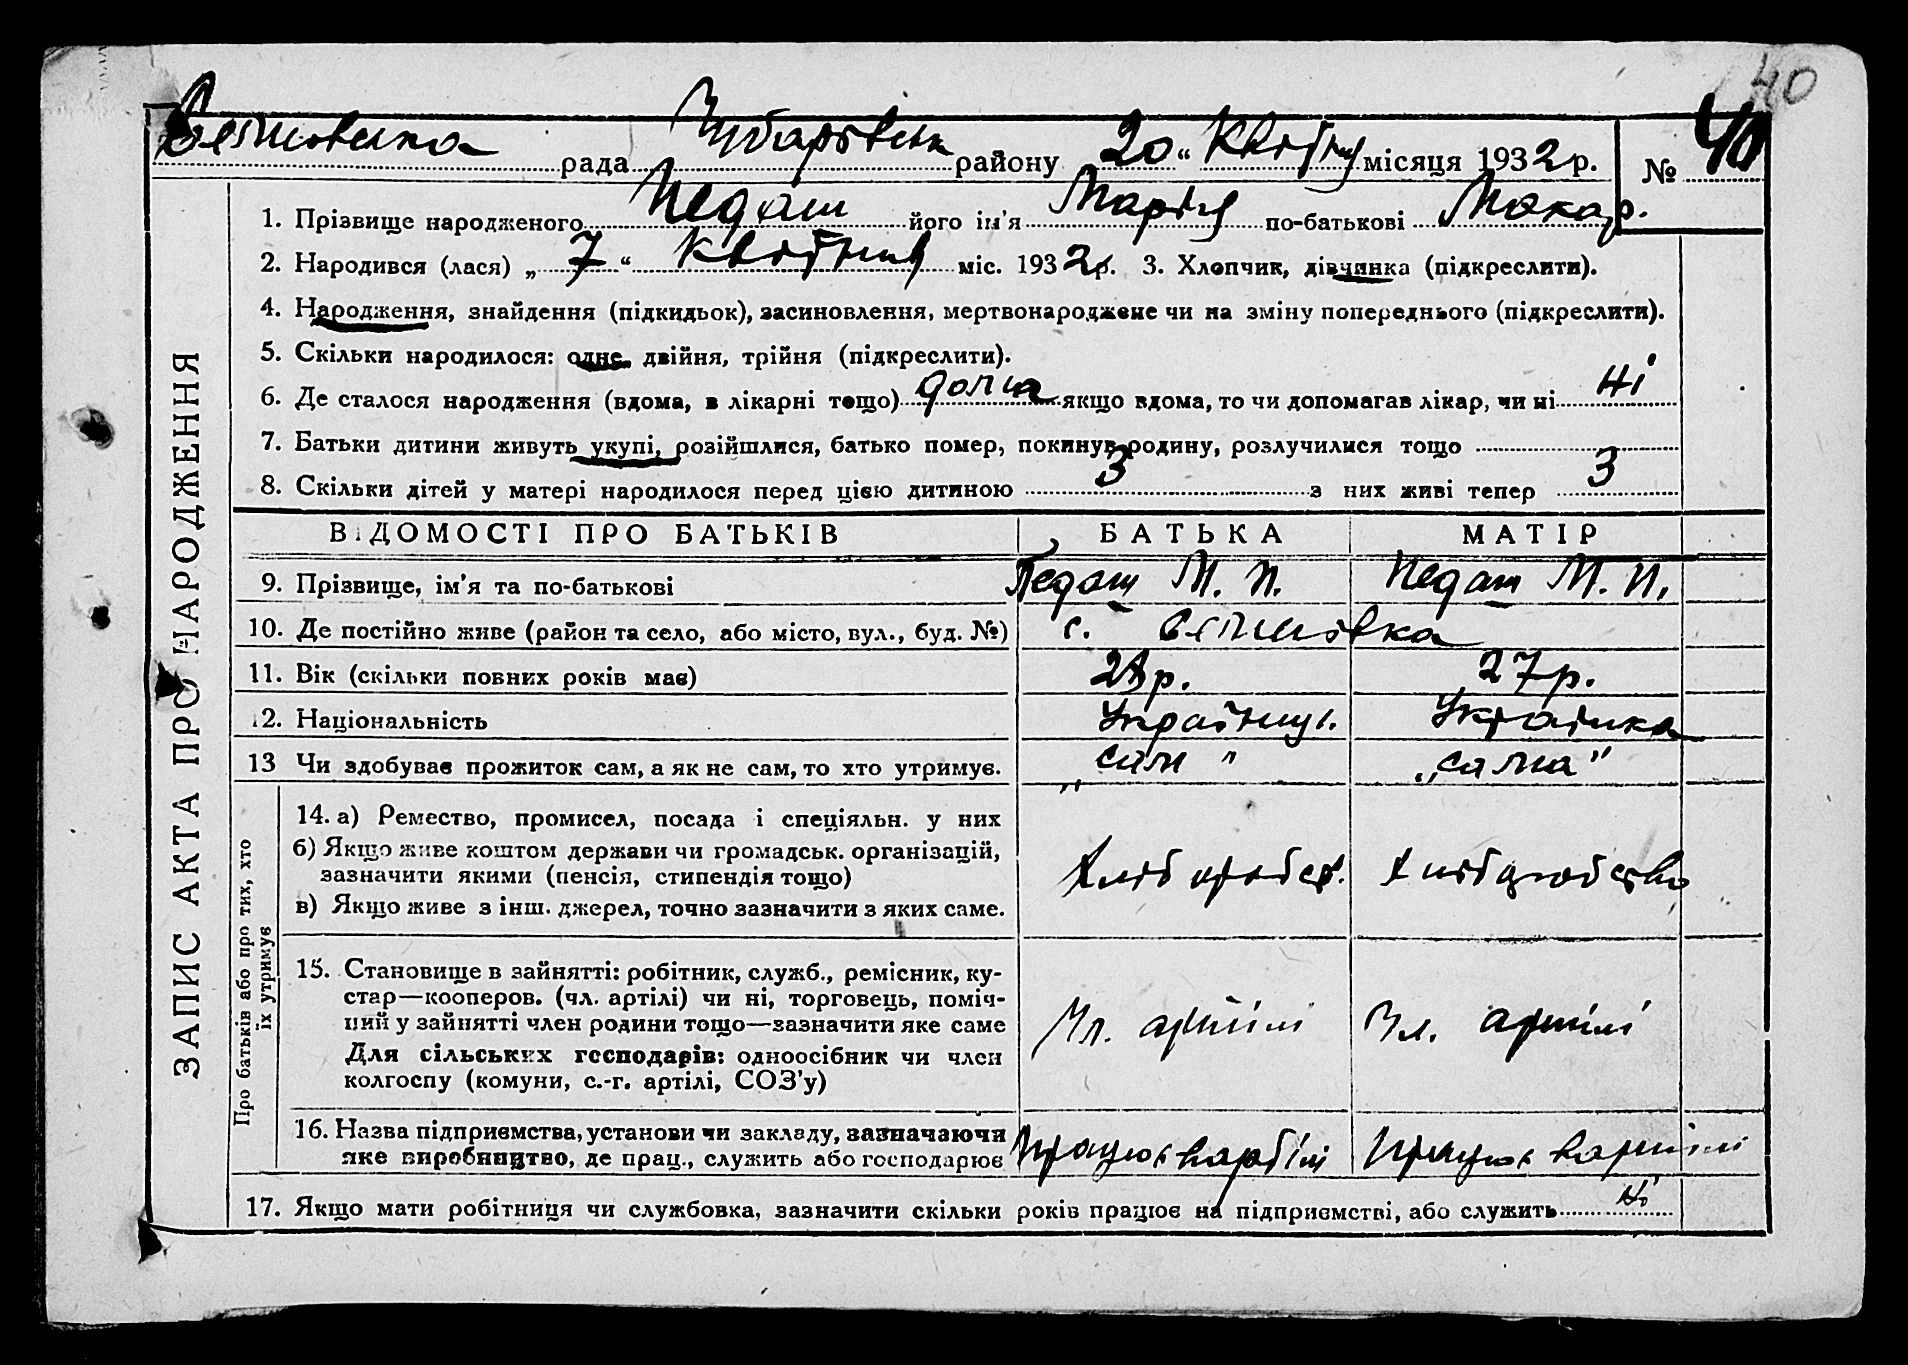 40
рада Чубарівськ району 20 “ Квітня місяця 1932 р. № 40
1. Прізвище народженого Недаш його ім'я Марія по-батькові Макар.
2. Народився (лася) „ 7 “ квітня міс. 1932 р. 3. Хлопчик, дівчинка (підкреслити).
4. Народження, знайдення (підкидьок), засиновлення, мертвонароджене чи на зміну попереднього (підкреслити).
5. Скільки народилося: одне, двійня, трійня (підкреслити).
6. Де сталося народження (вдома, в лікарні тощо) дома якщо вдома, то чи допомагав лікар, чи ні ні
7. Батьки дитини живуть укупі, розійшлися, батько помер, покинув родину, розлучилися тощо
8. Скільки дітей у матері народилося перед цією дитиною 3 з них живі тепер 3
ЗАПИС АКТА ПРО НАРОДЖЕННЯ
ВІДОМОСТІ ПРО БАТЬКІВ БАТЬКА МАТІР
9. Прізвище, ім'я та по-батькові Недаш М. П. Недаш М. П.
10. Де постійно живе (район та село, або місто, вул., буд. №) с.
11. Вік (скільки повних років має) 28 р. 27 р.
12. Національність Українц. Українка
13 Чи здобуває прожиток сам, а як не сам, то хто утримує. „сам" „сама"
Про батьків або про тих, хто їх утримує
14. а) Ремество, промисел, посада і спеціяльн. у них
б) Якщо живе коштом держави чи громадськ. організацій,
зазначити якими (пенсія, стипендія тощо)
в) Якщо живе з інш. джерел, точно зазначити з яких саме.
15. Становище в зайнятті: робітник, служб., ремісник, ку-
стар—кооперов. (чл. артілі) чи ні, торговець, поміч-
ний у зайнятті член родини тощо—зазначити яке саме
Чл. артілі Чл. артілі
Для сільських господарів: одноосібник чи член
колгоспу (комуни, с.-г. артілі, СОЗ'у)
16. Назва підприємства, установи чи закладу, зазначаючи
яке виробництво, де прац., служить або господарює
Працює в артілі Працює в артілі
17. Якщо мати робітниця чи службовка, зазначити скільки років працює на підприємстві, або служить ні